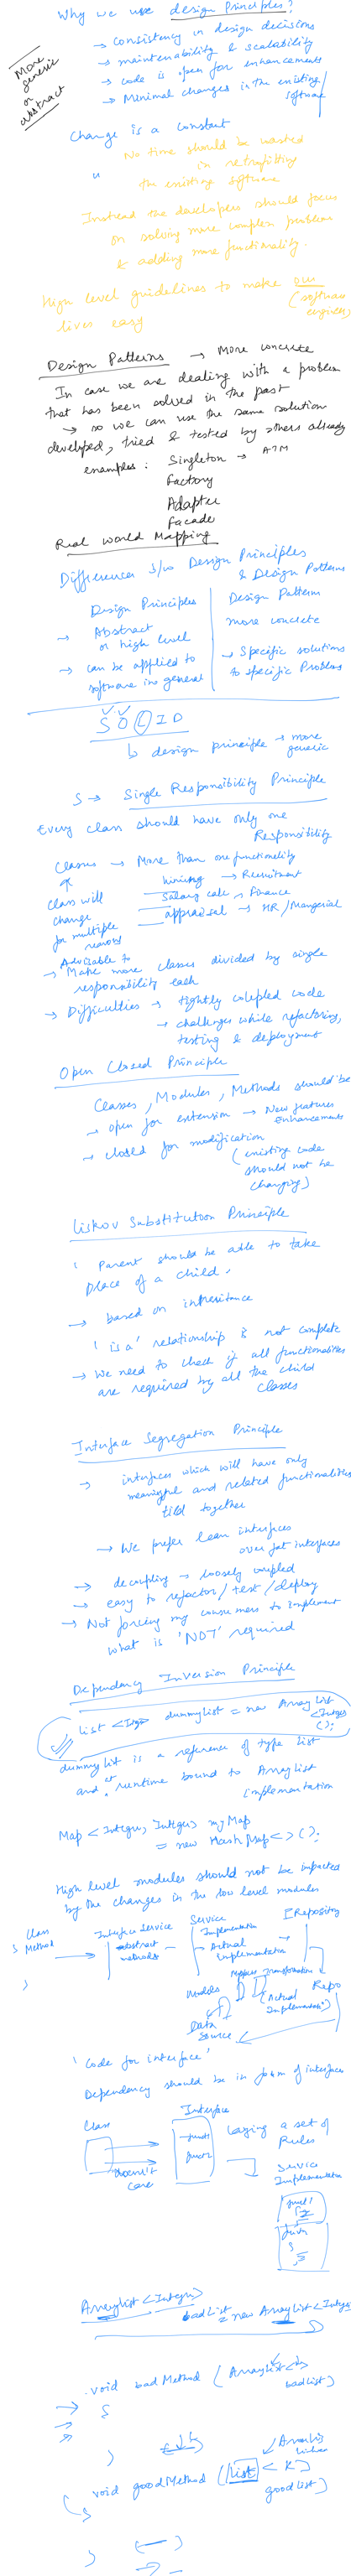 Why we use design Principles?
→ Consistency in design decisions
→ maintainability & scalability
→ code is open for enhancements
→ Minimal changes in the existing software
More generic or abstract
Change is a constant
No time should be wasted
in retrofitting
the existing software
Instead the developers should focus
on solving more complex problems
& adding more functionality.
High level guidelines to make our
lives easy (software engineers)
Design Patterns → More concrete
In case we are dealing with a problem
that has been solved in the past
→ so we can use the same solution
developed, tried & tested by others already
examples: Singleton → ATM
Factory
Adapter
Facade
Real World Mapping
Differences b/w Design Principles
& Design Patterns
Design Principles
→ Abstract
or high level
→ can be applied to
software in general
Design Pattern
more concrete
→ Specific solutions
to specific Problems
SOLID
↳ design principle → more generic
S → Single Responsibility Principle
Every class should have only one
Responsibility
Classes → More than one functionality
class will
change
for multiple
reasons
hiring → Recruitment
Salary calc → Finance
appraisal → HR/Mangerial
Advisable to
→ Make more classes divided by single
responsibility each
→ Difficulties → tightly coupled code
→ challenges while refactoring,
testing & deployment
Open Closed Principle
Classes, Modules, Methods should be
→ open for extension → New features
Enhancements
→ closed for modification
(existing code
should not be
changing)
Liskov Substitution Principle
' Parent should be able to take
place of a child.
→ based on inheritance
' is a' relationship is not complete
→ We need to check if all functionalities
are required by all the child
classes
Interface Segregation Principle
→ interfaces which will have only
meaningful and related functionalities
tied together
→ We prefer lean interfaces
over fat interfaces
→ decoupling → loosely coupled
→ easy to refactor/test/deploy
→ Not forcing my consumers to implement
what is 'NOT' required
Dependency Inversion Principle
List <Integer> dummyList = new ArrayList
<Integer>
();
dummyList is a reference of type List
and at runtime bound to ArrayList
implementation
Map <Integer, Integer> myMap
= new HashMap<>();
High level modules should not be impacted
by the changes in the low level modules
Class
Method
{
}
Interface Service
abstract
methods
Service
Implementation
Actual
Implementation
IRepository
Models
Data
Source
Repo
(Actual
Implementation)
' Code for interface'
Dependency should be in form of interfaces
Class
doesn't
care
Interface
func1
func2
Laying a set of
Rules
Service
Implementation
func1
{
}
func
{
}
ArrayList <Integer>
badList = new ArrayList <Integer>
void badMethod (ArrayList<>
badList)
{
}
void goodMethod (List <
goodList)
{
}